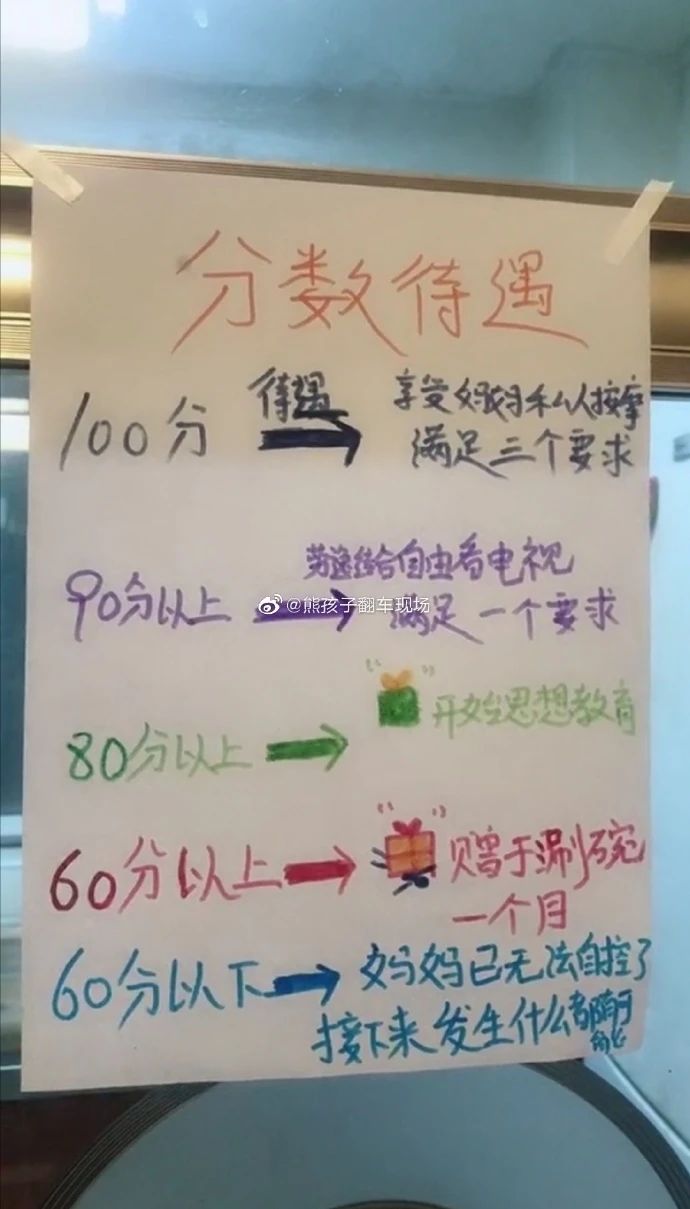 分数待遇
100分 待遇 享受妈妈私人按摩
满足三个要求
劳逸结合自由看电视
90分以上 满足一个要求
@熊孩子翻车现场
80分以上 开始思想教育
60分以上 赠于涮碗
一个月
60分以下 妈妈已无法自控了
接下来发生什么都有可能